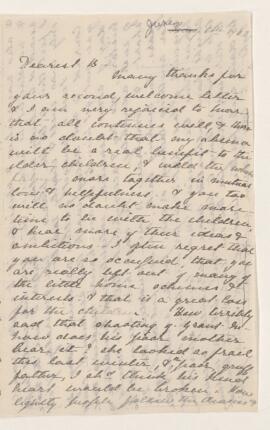 Dearest B
Many thanks for
your second, welcome letter
& I am very rejoiced to hear
that all continues well, & there
is no doubt that my absence
will be a real benefit to the
older children, & mould the whole
more together in mutual
love & helpfulness. & you too
will no doubt make more
time to be with the children
& hear more of their ideas &
ambitions. I often regret that
you are so occupied that you
are really left out of many of
the little home schemes &
interests. & that is a great loss
for the children. How terribly
sad that shooting of
how does his poor mother
bear it? she looked so frail
this last winter, & poor gruff
father, I shd think his
heart would be broken. How
lightly people